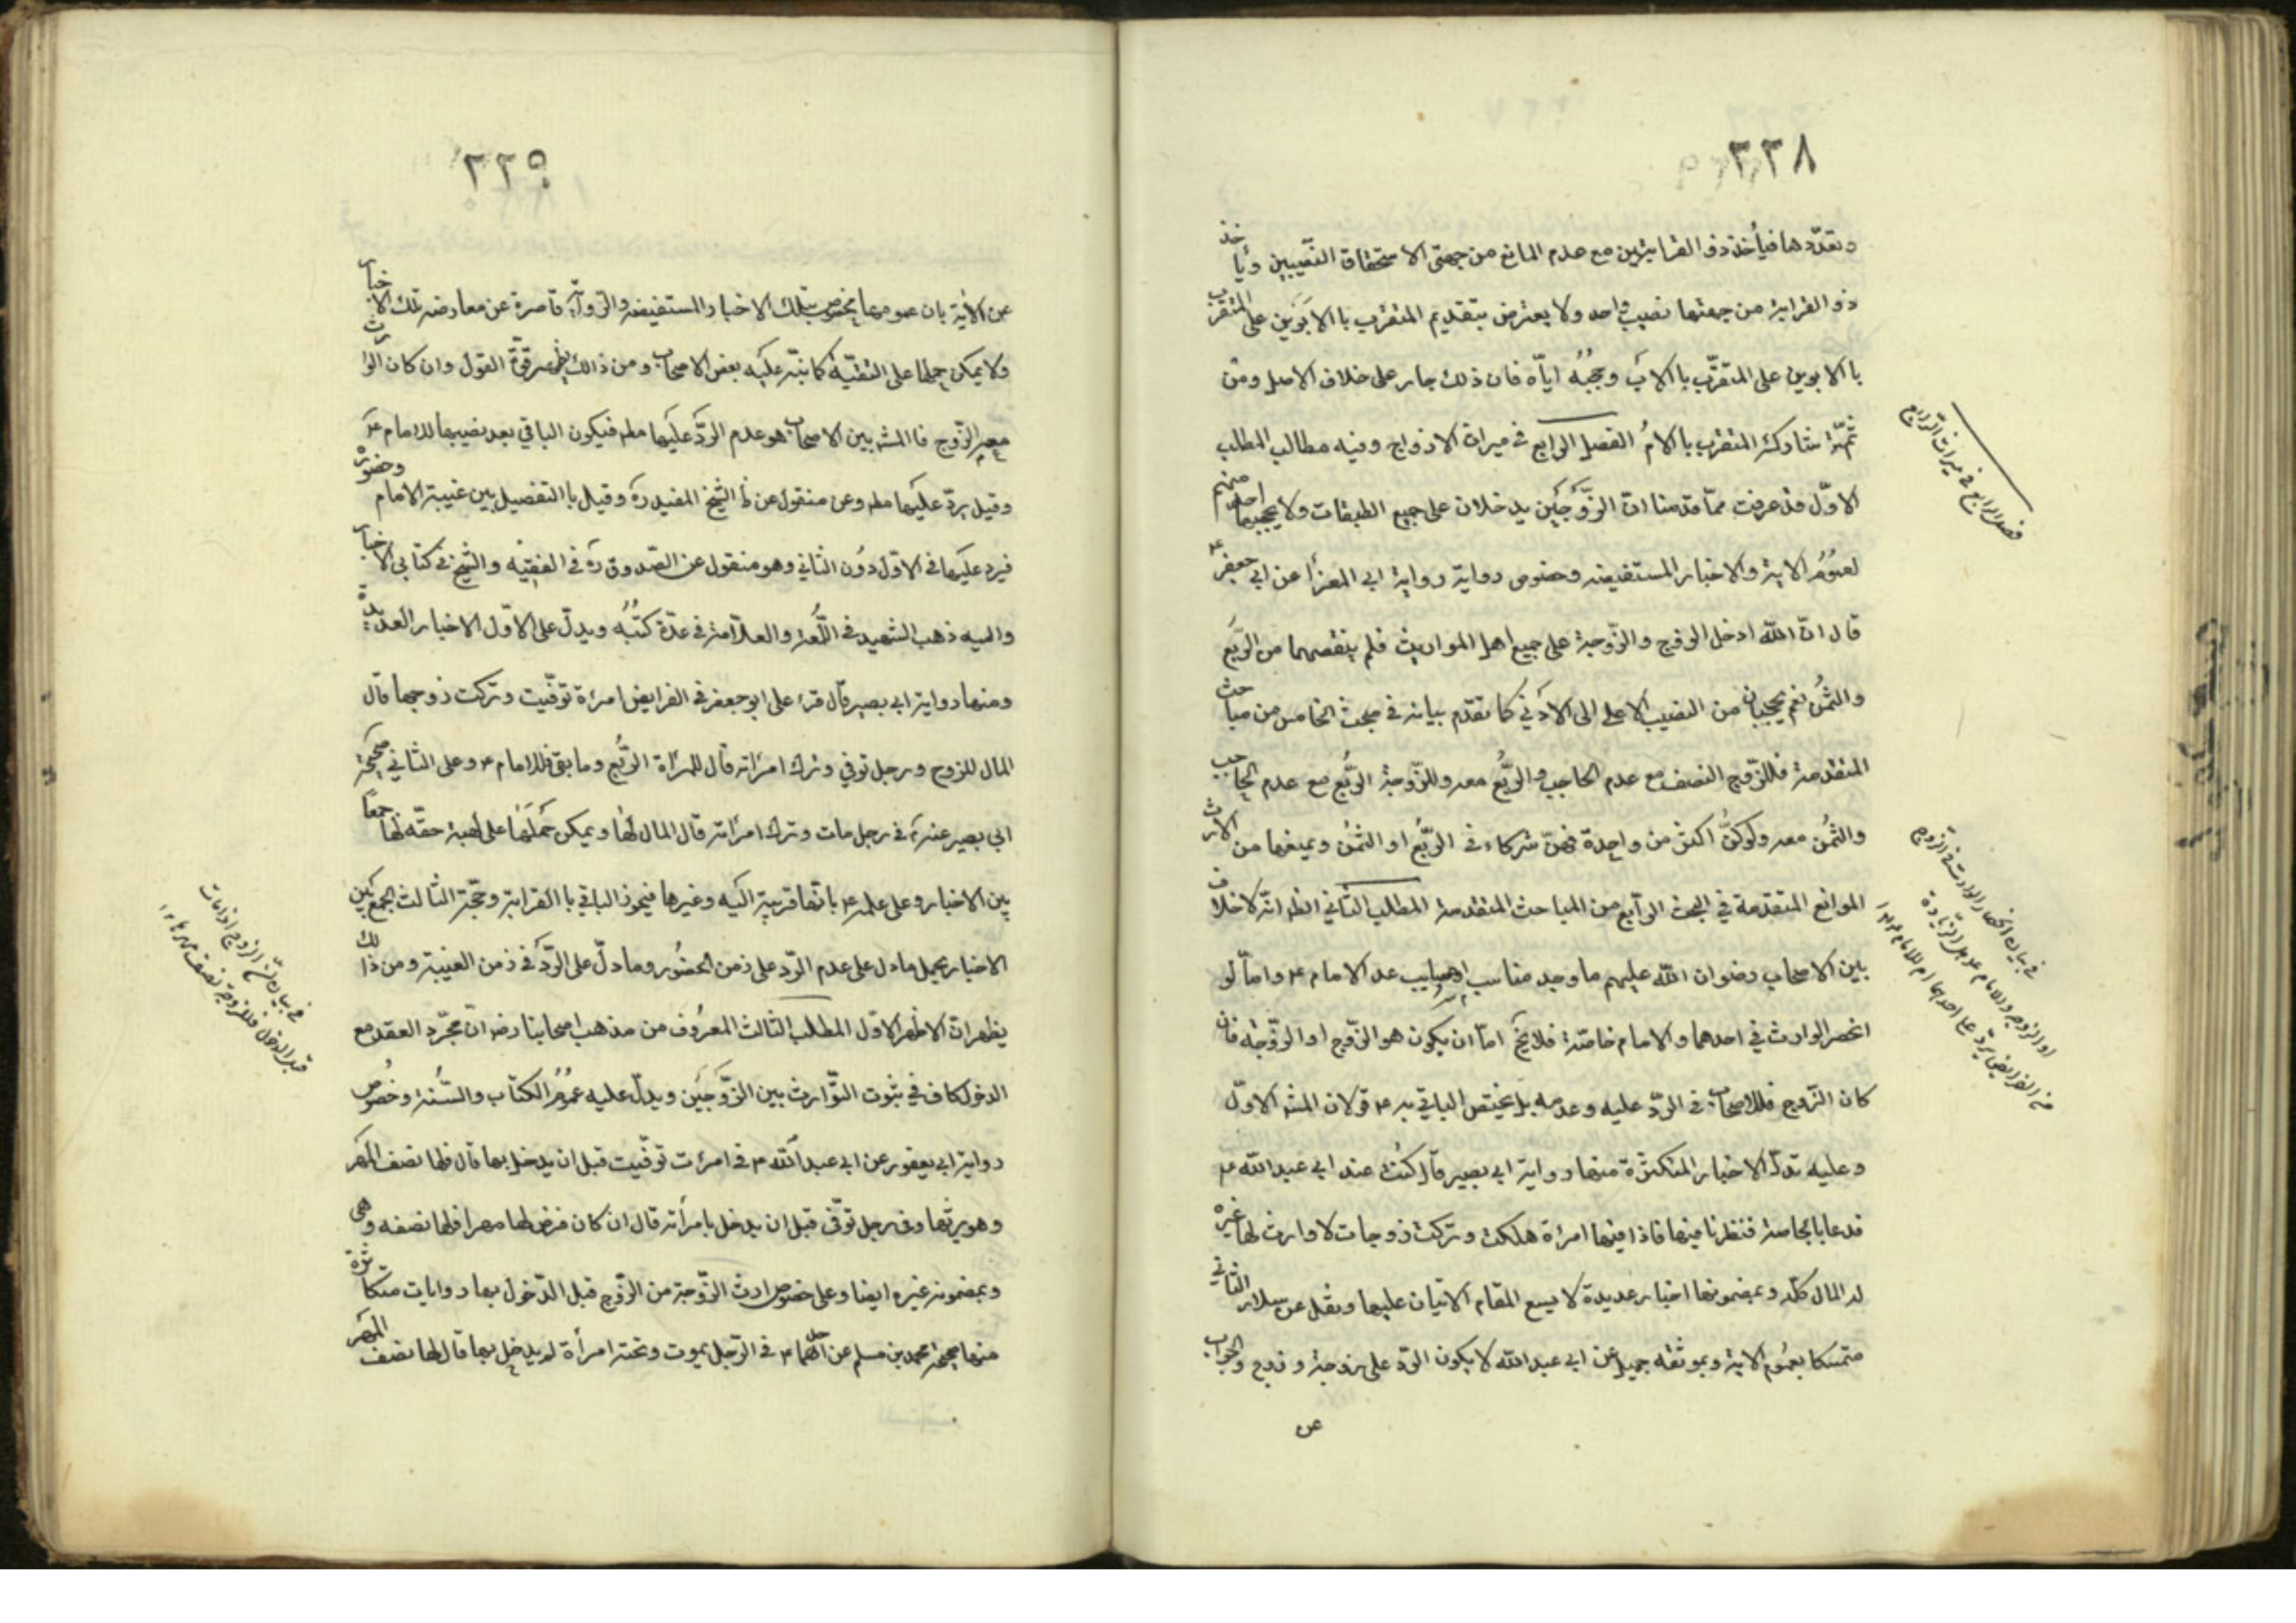 ٣٣٨
وتعدّدها فيأخذ ذو القرابتين مع عدم المانع من جهتى الاستحقاق النصيبين ويأخذ
ذو القرابة من جهتها نصيب واحد ولا يعترض بتقديم المتقرب باالابوين على المتقرب
باالابوين على المتقرّب باالاب وحجبه اياه فان ذلك جار على خلاف الاصل ومن
ثمّة شاركه المتقرب باالام الفصل الرابع في ميراث الازواج وفيه مطالب المطلب
الاوّل قد عرفت ممّا قدمنا ان الزّوجين يدخلان على جميع الطبقات ولا يحجبهما احد منهم
لعموم الاية والاخبار المستفيضه وخصوص رواية رواية ابي المعزا عن ابي جعفر ع
قال انّ الله ادخل الزوج والزّوجة على جميع اهل المواريث فلم ينقصهما من الرّبع
والثمن نعم يحجبان من النصيب الاعلى الى الادني كما تقدم بيانه في مبحث الخامس من مباحث
المتقدمة فللزّوج النصف مع عدم الحاجب والرّبع معه وللزّوجة الرّبع مع عدم الحاجب
والثمن معه ولو كنّ اكثر من واحدة فهنّ شركاء في الرّبع او الثمن ويمنعها من الارث
الموانع المتقدمة في البحث الرّابع من المباحث المتقدمة المطلب الثاني الظ انّه لا خلاف
بين الاصحاب رضوان الله عليهم ما وجد مناسب عد الامام ع وامّا لو
انحصر الوارث في احدهما والامام خاصّة فلا يخ امّا ان يكون هو الزّوج او الزّوجة فان
كان الزّوج فللاصحاب في الردّ عليه وعدمه بل يختص الباقي به ع قولان المشه الاوّل
وعليه تدلّ الاخبار المتكثرة منها رواية ابي بصير قال كنت عند ابي عبد الله ع
فدعا باالجامعة فنظرنا فيها فاذا فيها امرءة هلكت وتركت زوجات لا وارث لها غيره
له المال كلّه وبمضمونها اخبار عديدة لا يسع المقام الاتيان عليها ونقل عن سلار الثاني
متمسكا بعموم الاية وبموثقه جميل عن ابي عبد الله لا يكون الردّ على زوجة وزوج والجواب
عن
فصل الرابع في ميراث الزوج
في بيان انحصار الوارث في الزوج
او الزوجه والامام ع هل الزيادة
من الفرايض يردّ على احدهما ام للامام
٣٣٩
عن الاية بان عمومها مخصوص بتلك الاخبار المستفيضه والرّواية قاصرة عن معارضه تلك الاخبار
ولا يمكن حملها على التقيّة كما نبّه عليه بعض الاصحاب ومن ذالك يظهر قوّة القول وان كان الوارث
معه الزّوج فاالمشه بين الاصحاب هو عدم الردّ عليها مطه فيكون الباقي بعد نصيبها للامام ع
وقيل يردّ عليها مطه وعن منقول عن ظا الشيخ المفيد ره وقيل باالتفصيل بين غيبة الامام وحضوره
فيرد عليها في الاوّل دون الثاني وهو منقول عن الصّدوق ره في الفقيه والشيخ في كتابى الاخبار
واليه ذهب الشهيد في اللّمعة والعلّامة في عدّة كتبه ويدلّ على الاوّل الاخبار العديدة
ومنها رواية ابي بصير قال قرء على ابو جعفر في الفرايض امرءة توفّيت وتركت زوجها قال
المال للزوج ورجل توفي وترك امراته قال للمراة الرّبع وما بقى فللامام ع وعلى الثاني صحيحة
ابي بصير عنه ع في رجل مات وترك امراته قال المال لها ويمكن حملها على لهبة حقّه لها جمعا
بين الاخبار وعلى علمه ع بانّها قريبة اليه وغيرها فيحوذ الباقي باالقرابة وحجّة الثالث الجمع بين
الاخبار بحمل مادل على عدم الردّ على زمن الحضور ومادلّ على الردّ في زمن الغيبة ومن ذالك
يظهر انّ الاظهر الاوّل المطلب الثالث المعروف من مذهب اصحابنا رضه انّ مجّرد العقد مع
الدخول كاف في ثبوت التّوارث بين الزّوجين ويدلّ عليه عموم الكتاب والسّنة وخصوص
رواية ابي يعفور عن ابي عبد الله ع في امرءت توفّيت قبل ان يدخل بها قال فلها نصف المهر
وهو يرثها وفي رجل توفّى قبل ان يدخل بامرأته قال ان كان فرض لها مهرا فلها نصفه وهي
وبمضمونه غيره ايضا وعلى خصوص ارث الزّوجة من الزّوج قبل الدّخول بها روايات متكاثرة
منها صحيحة محمد بن مسلم عن احدهما ع في الرّجل يموت وتحته امرأة لم يدخل بها قال لها نصف المهر
في بيان الزوج اذا مات
قبل الدخول فللزوجة نصف مهرها